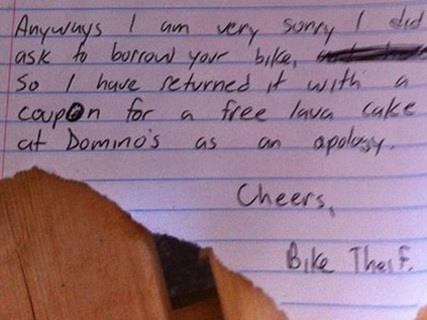 Anyways I am very sorry I did
ask to borrow your bike,
So I have returned it with a
coupon for a free lava cake
at Domino's as an apology.
Cheers,
Bike Theif.